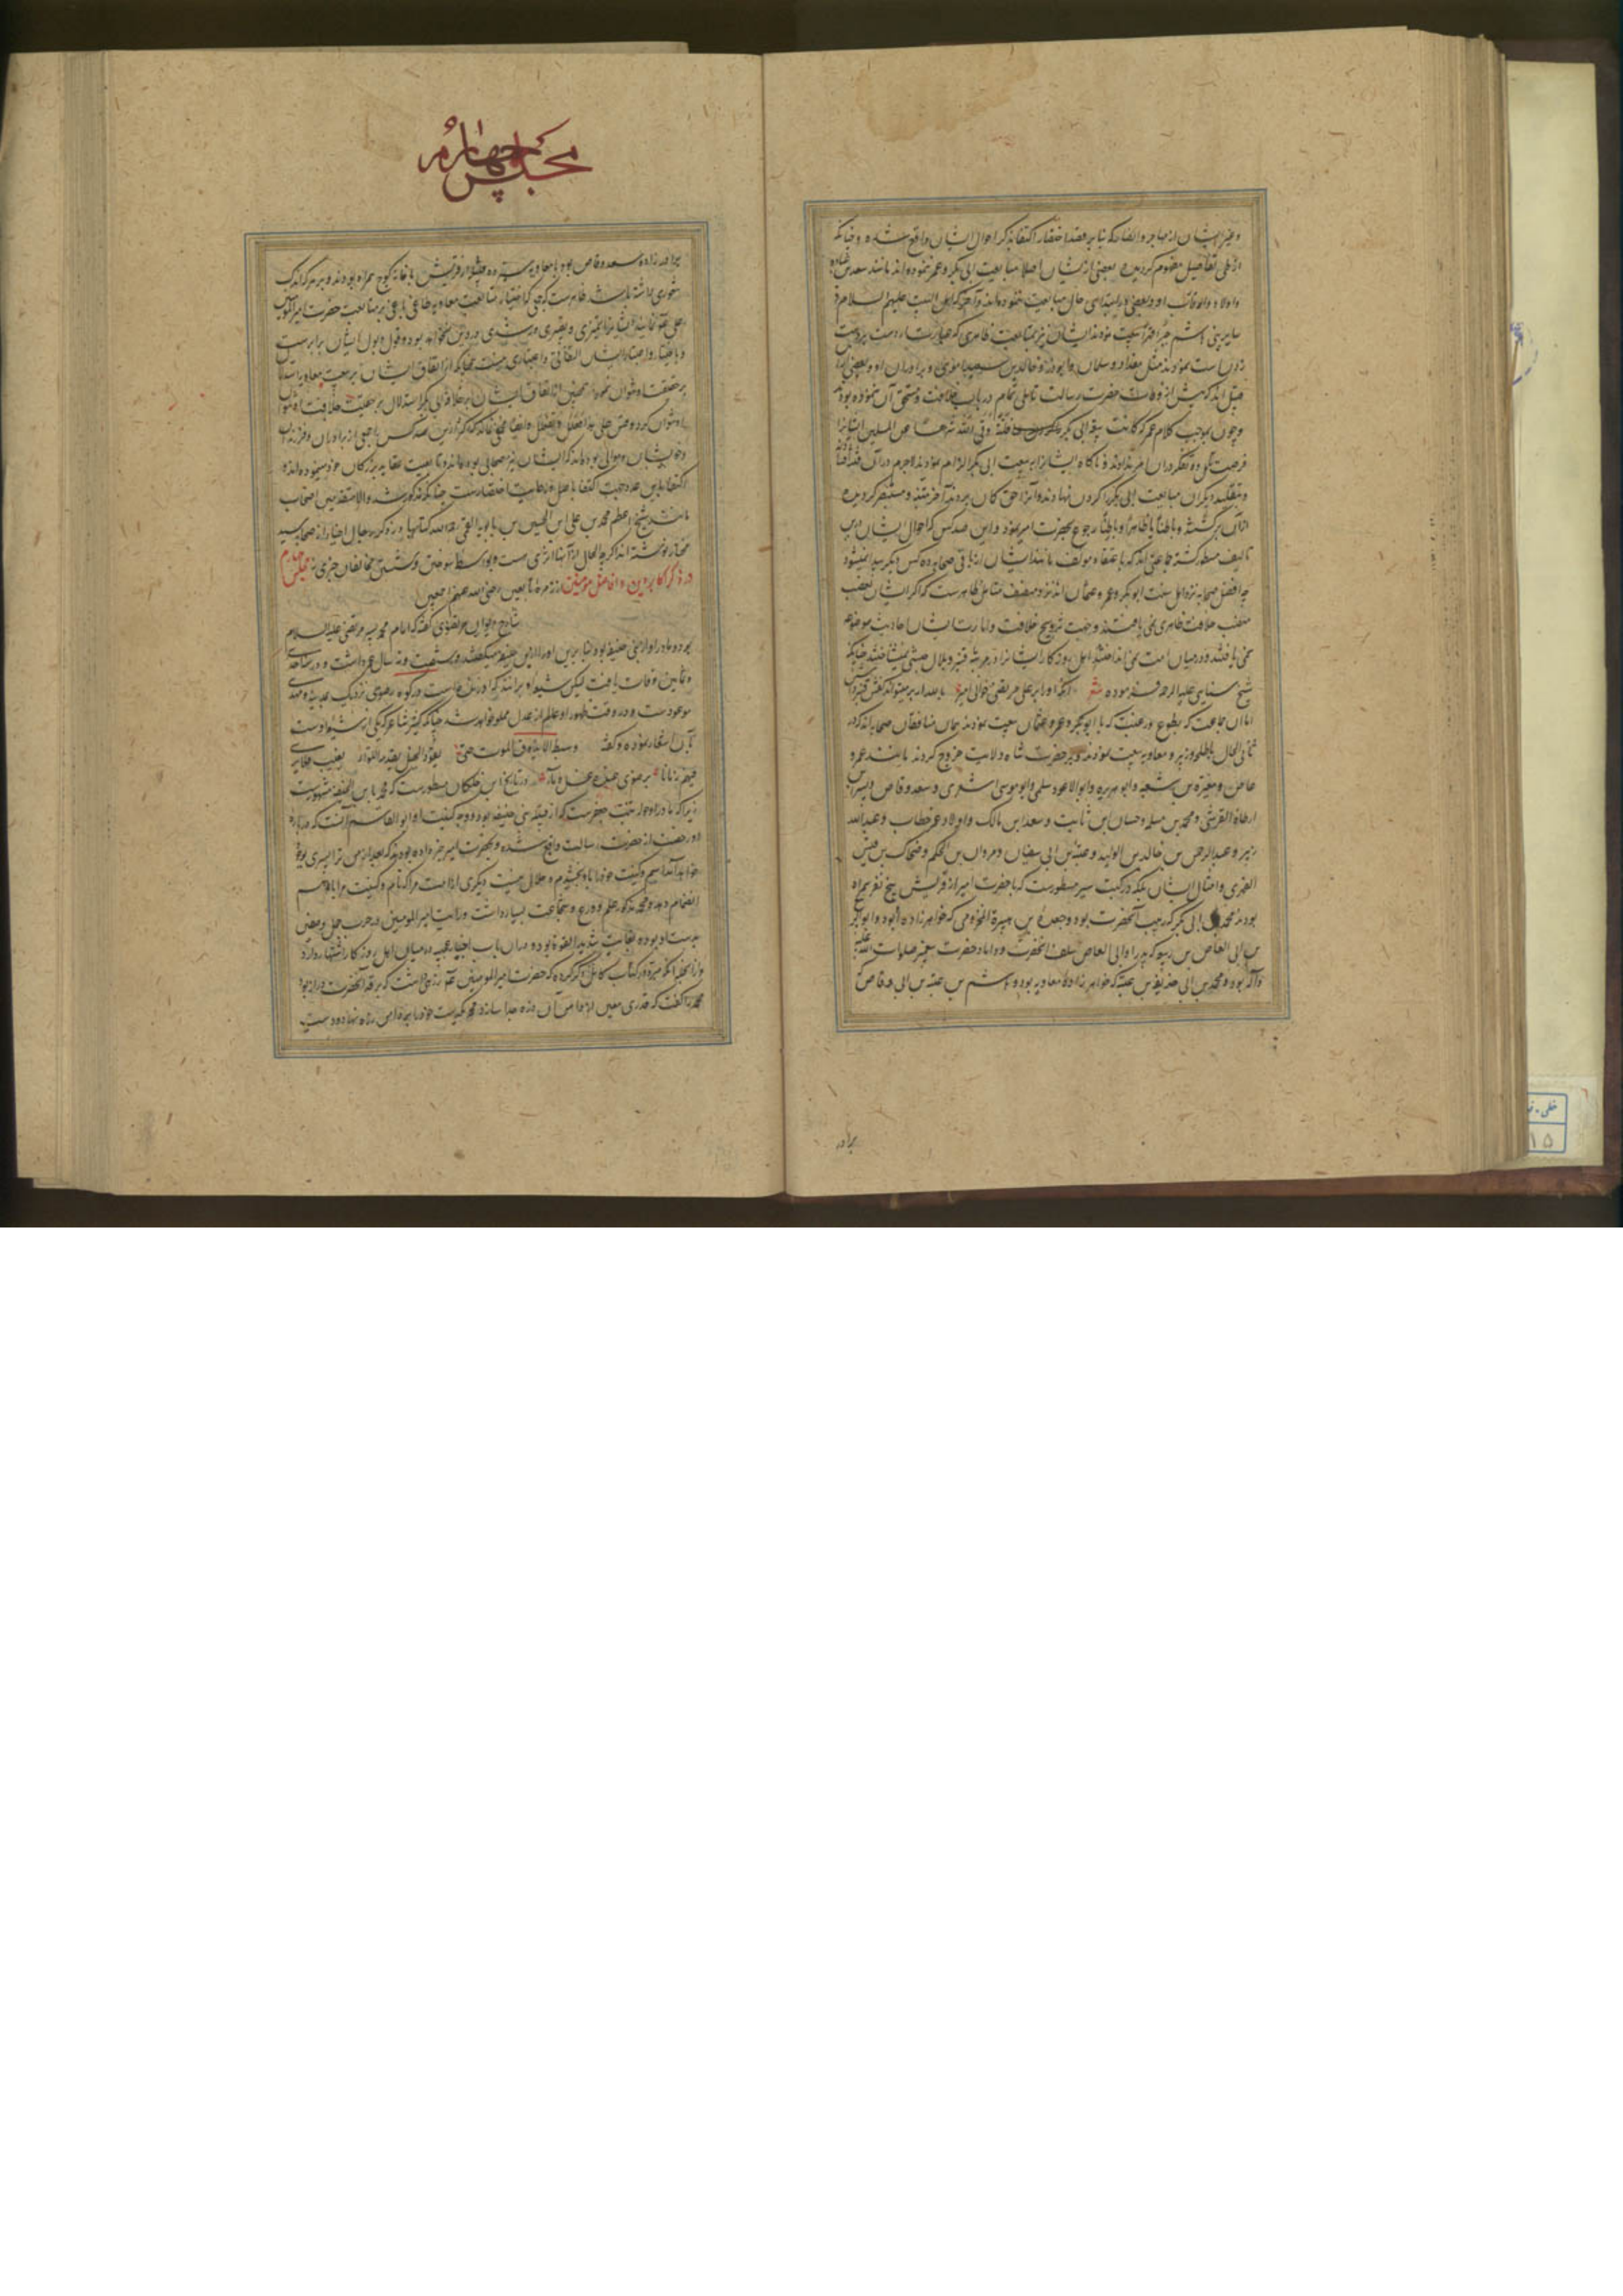 و غیر ایشان از مهاجر و انصار که بنا بر قصد اختصار اکتفا بذکر احوال ایشان واقع نشده و چنانکه
از طی تفاصیل مفهوم گردیده بعضی از ایشان اصلا مبایعت ابی بکر و عمر ننموده اند مانند سعد بن عباده
و اولاد و بعضی در ابتدای حال مبایعت ننموده اند و آخر کاهل البیت علیهم السلام و
سایر بنی هاشم جبرا قهرا بیعت نمودند ایشان نیز بمتابعت ظاهری که عبارت از دست بر دست
زدن است نمودند مثل مقداد و سلمان و ابوذر و خالد بن سعید اموی و برادران او و بعضی از
قبیل اند که پیش از وفات حضرت رسالت تاملی تمام در باب خلافت و مستحق آن ننموده بودند
و چون بموجب کلام عمر که کانت بیعة ابی بکر فلتة وقی الله شرها عن المسلمین ایشانرا
فرصت تامل و تفکر در آن امر ندادند و ناگاه ایشانرا به بیعت ابی بکر الزام نمودند لاجرم در آن
و بتقلید دیگران مبایعت ابی بکر را گردن نهادند و آنرا حق گمان بردند آخر متنبه و مستبصر گردیده
از آن برگشته و باطنا یا ظاهرا و باطنا رجوع بحضرت امیر نمود و این صد کس که احوال ایشان درین
تالیف مسطور گشته جماعتی اند که باعتقاد مؤلف مانند ایشان از باقی صحابه ده کس دیگر پیدا نمیشود
چه افضل صحابه نزد اهل سنت ابوبکر و عمر و عثمان اند و نزد منصف متامل ظاهرست که اگر ایشان غصب
منصب خلافت ظاهری نمی یافتند و جهت ترویج خلافت و امارت ایشان احادیث موضوعه
نمی یافتند و در میان امت نمی انداختند اهل روزگار ایشانرا در مرتبه قنبر و بلال حبشی نمیشناختند چنانکه
شیخ سنایی علیه الرحمه فرموده شعر
اما آن جماعت که بطوع و رغبت که با ابوبکر و عمر و عثمان بیعت نمودند همان منافقان صحابه اند که در
ثانی الحال با طلحه و زبیر و معاویه بیعت نمودند و بر حضرت شاه ولایت خروج کردند مانند عمرو
عاص و مغیرة بن شعبه و ابو هریره و ابو الاعور سلمی و ابو موسی اشعری و سعد وقاص و بسر بن
ارطاة القرشی و محمد بن مسلمه و حسان بن ثابت و سعد بن مالک و اولاد عمر خطاب و عبدالله
زبیر و عبدالرحمن بن خالد بن الولید و عتبة بن ابی سفیان و مروان بن الحکم و ضحاک بن قیس
الفهری و امثال ایشان بلکه در کتب سیر مسطورست که با حضرت امیر از قریش پنج نفر همراه
بودند محمد بن ابی بکر که ربیب آنحضرت بود و جعدة بن هبیرة المخزومی که خواهرزاده او بود و ابوالربیع
بن ابی العاص بن ربیعه که پدر او ابی العاص سلف آنحضرت و داماد حضرت پیغمبر صلوات الله علیه
و آله بوده و محمد بن ابی حذیفة بن عتبه که خواهرزاده معاویه بود و هاشم بن عتبة بن ابی وقاص که
برادر
مجلس چهارم
برادرزاده سعد وقاص بود با معاویه سیزده قبیله از قریش با خانه کوچ همراه بودند و بر هر که اندک
شعوری داشته باشد ظاهرست که جمعی که اختیار متابعت معاویه طاغی باغی بر متابعت حضرت امیرالمؤمنین
علی نمایند ایشانرا تمیزی و بصیرتی و رشدی در دین نخواهد بود و قول و بول ایشان برابرست
و باختیار و اجتناب ایشان التفاتی و اعتباری نیست همچنانکه از اتفاق ایشان بر بیعت معاویه استدلال
بر حقیقت او نتوان نمود همچنین از اتفاق ایشان بر خلافت ابی بکر استدلال بر حقیقت خلافت او نتوان
و خویشان و موالی بوده اند که ایشان نیز صحابی بوده اند و تابعیت عقاید بزرگان خود مینموده اند و
اکتفا باین عدد جهت رعایت اختصارست چنانکه مذکور شد و الا متقدمین اصحاب
مانند شیخ اعظم محمد بن علی بن الحسین بن بابویه القمی رحمه الله کتابها در ذکر رجال اخیار از صحابه سید
مختار نوشته اند اگرچه الحال از آنها اثری نیست و بواسطه سوختن و شستن مخالفان چیزی نمانده مجلس چهارم
در ذکر اکابر دین و افاضل مؤمنین از زمره تابعین رضی الله عنهم اجمعین
شارح دیوان مرتضوی گفته که امام محمد پسر مرتضی علیه السلام
بود و مادر او از بنی حنیفه بود بنابرین او را ابن حنفیه میگفتند و شصت و نه سال عمر داشت و در سنه احدی
و ثمانین وفات یافت لیکن شیعه او برانند که او زنده است در کوه رضوی نزدیک مدینه و مهدی
موعودست و در وقت ظهور او عالم از عدل مملو خواهد شد چنانکه کثیر شاعر که یکی از شیعه اوست
بآن اشعار نموده و گفته وسبط لا یذوق الموت حتی یقود الخیل یقدمها اللواء یغیب فلا یری
فیهم زمانا برضوی عنده عسل و ماء در تاریخ ابن خلکان مسطورست که محمد بابن الحنفیه مشهورست
زیرا که مادر او خوله بنت جعفرست که از قبیله بنی حنیفه بود و وجه کنیت او ابو القاسم آنست که درباره
او رخصت از حضرت رسالت واقع شده و بحضرت امیر خبر داده بودند که بعد از من ترا پسری بوجود
خواهد آمد اسم و کنیت خود را باو بخشیدم و حلال نیست دیگری از امت مرا که نام و کنیت مرا باهم
انضمام دهد و محمد مذکور علم و ورع و شجاعت بسیار داشت و رایت امیرالمؤمنین در حرب جمل و صفین
بدست او بوده بغایت شدید القوة بوده و در آن باب اخبار عجیبه در میان اهل روزگار اشتهار دارد
و از آنجمله آنکه مبرد در کتاب کامل ذکر کرده که حضرت امیرالمؤمنین زرهی داشت که بر قد آنحضرت دراز بود
محمد را گفت که قدری معین از دامن آن زره جدا سازد محمد یکدست خود را بجدامن زره نهاد و دست